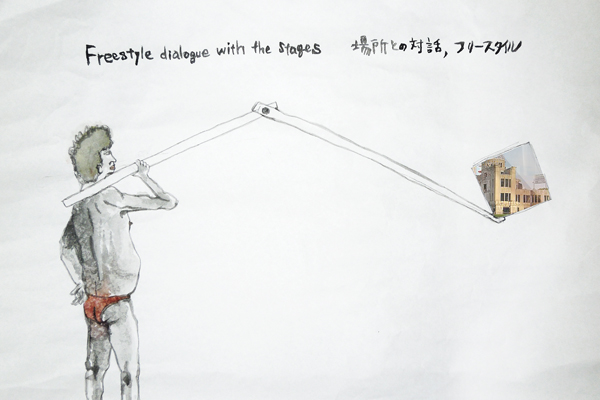 Freestyle dialogue with the stages 場所との対話, フリースタイル